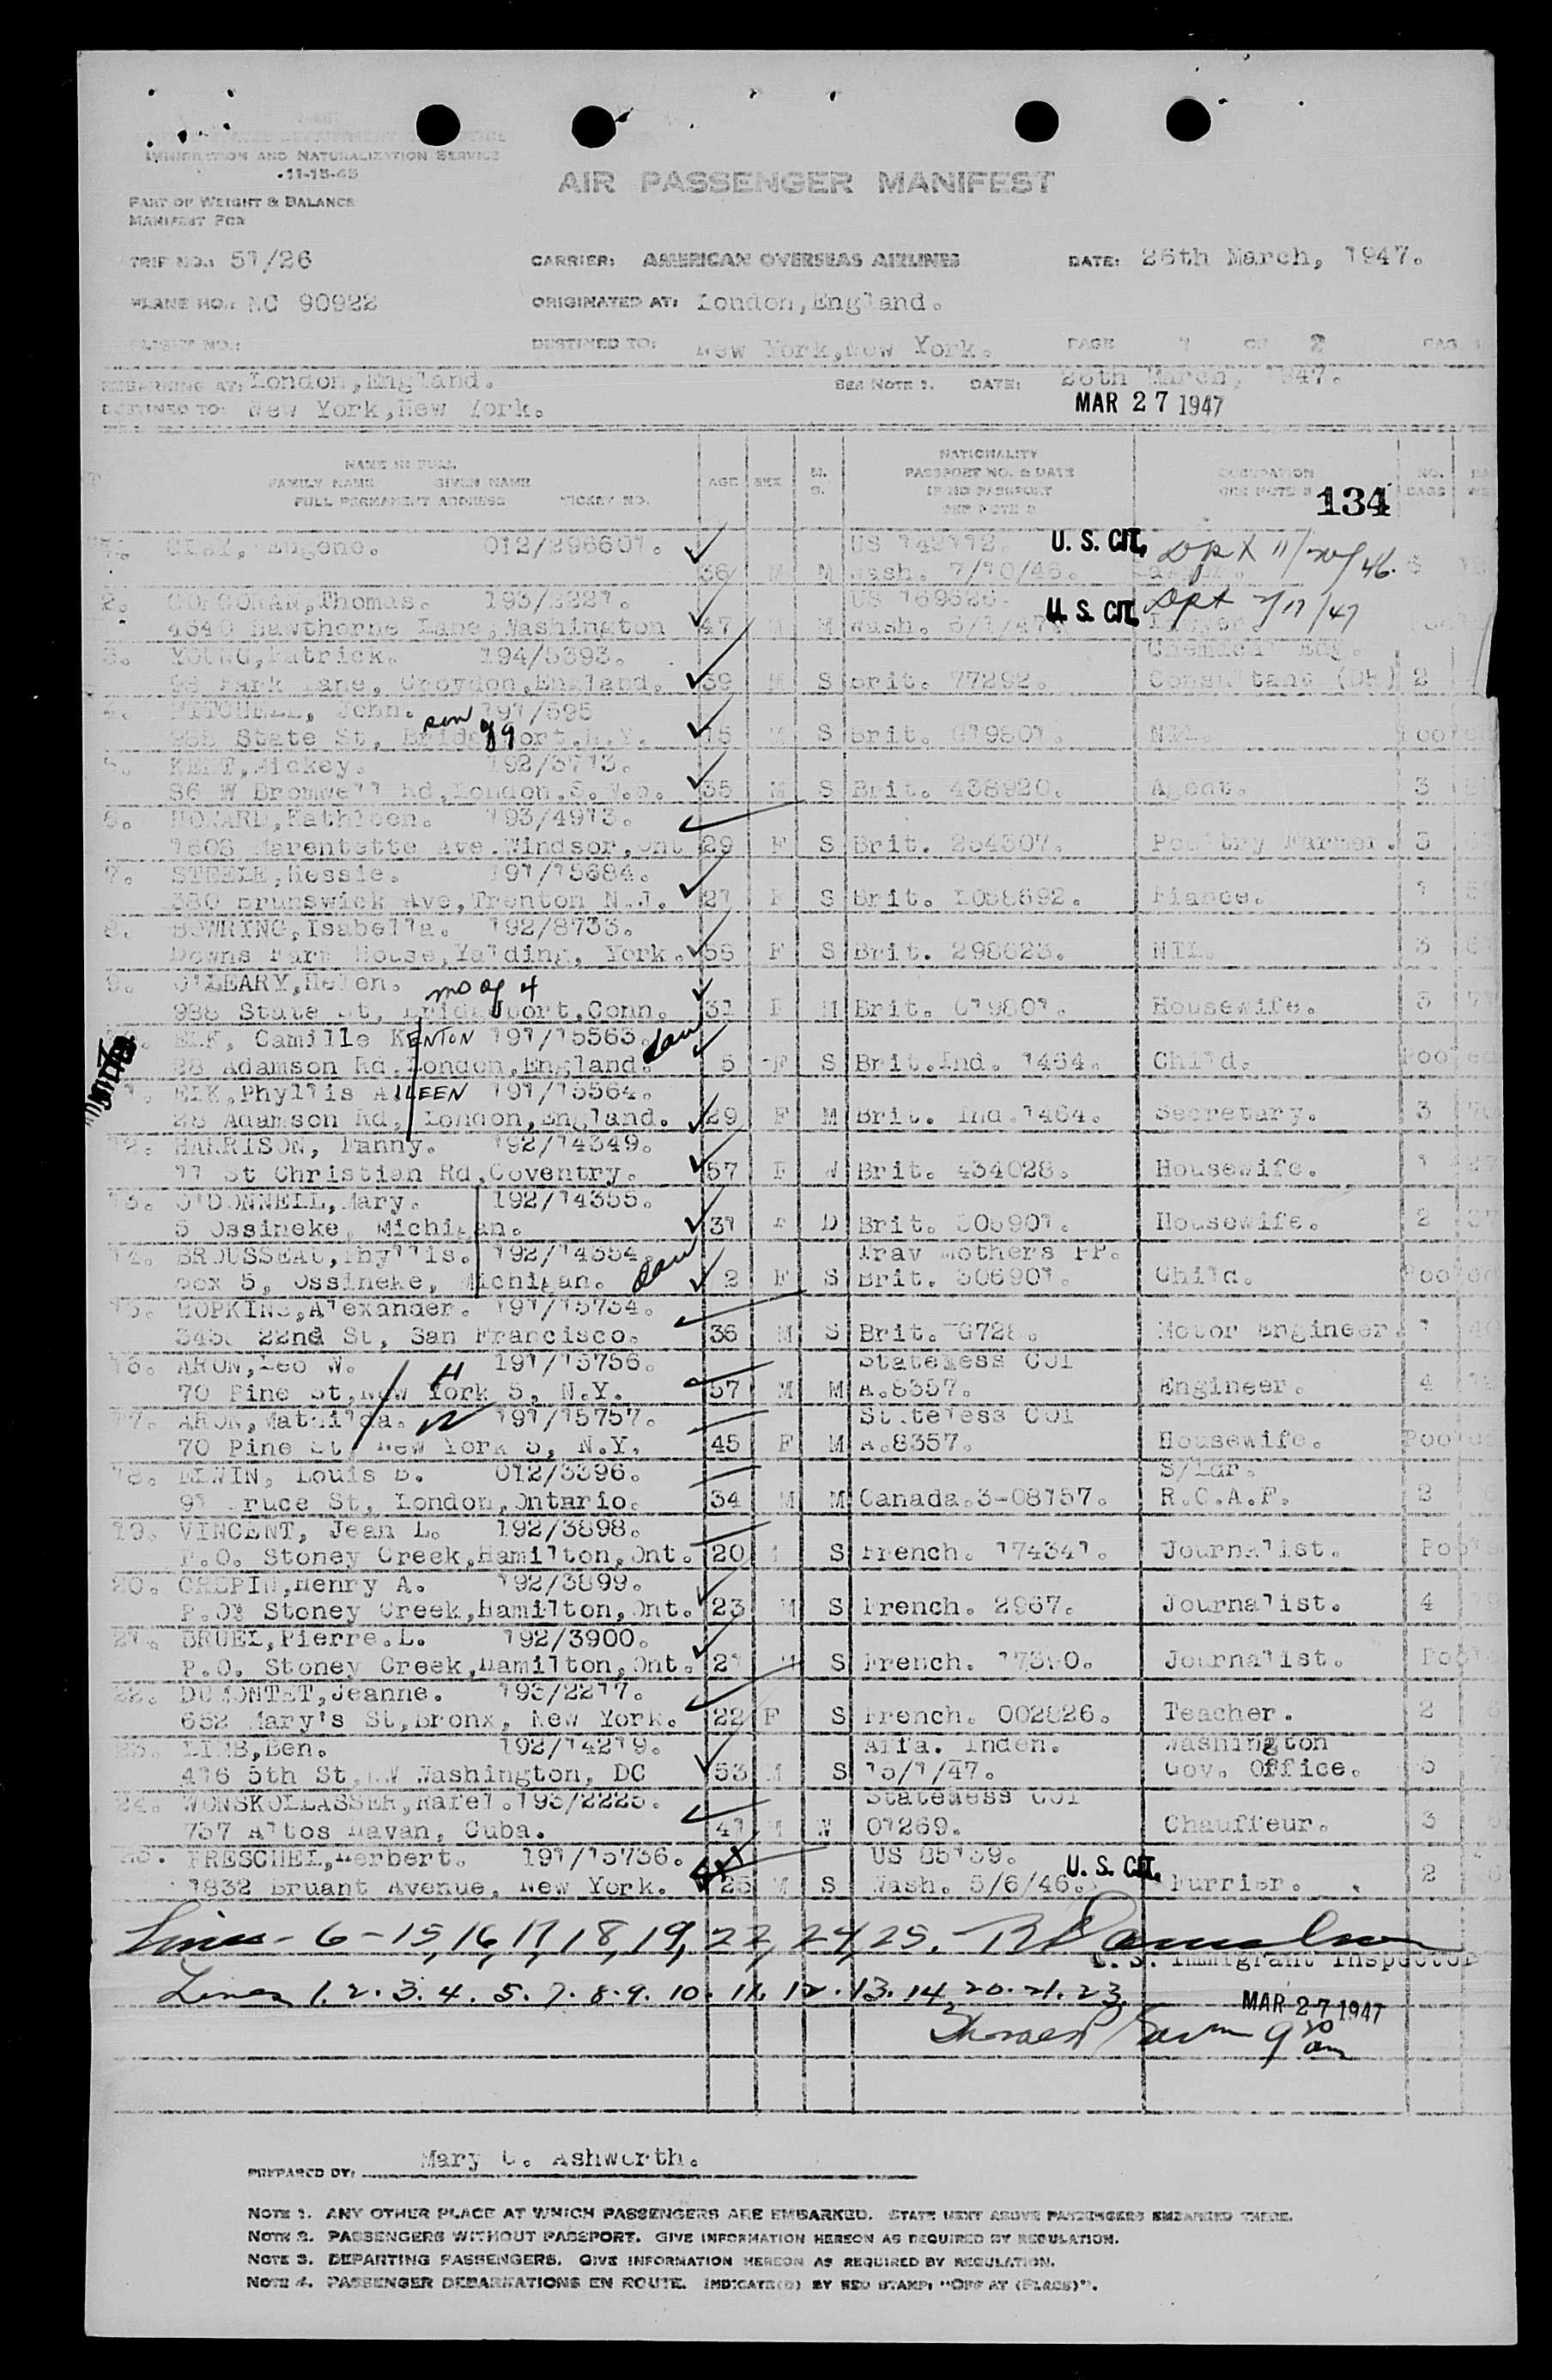 IMMIGRATION AND NATURALIZATION SERVICE
11-15-45
AIR PASSENGER MANIFEST
PART OF WEIGHT & BALANCE
MANIFEST FOR
TRIP NO.: 51/26 CARRIER: AMERICAN OVERSEAS AIRLINES DATE: 26th March, 1947.
PLANE NO.: NC 90922 ORIGINATED AT: London,England.
DESTINED TO: New York,New York. PAGE 1 OF 2
EMBARKING AT: London,England. SEE NOTE 1. DATE: 26th March, 1947.
DESTINED TO: New York,New York. MAR 27 1947
NAME IN FULL
FAMILY NAME GIVEN NAME
FULL PERMANENT ADDRESS TICKET NO.
AGE SEX M. S.
NATIONALITY
PASSPORT NO. & DATE
IF NO PASSPORT
SEE NOTE 2
OCCUPATION
SEE NOTE 3
NO. BAGS
134
1. Eugene. 012/296601. US 142112. U. S. CIT.
36 M M Wash. 7/10/46.
2. CORCORAN,Thomas. 193/2221. US 169526. U. S. CIT.
4640 Hawthorne Lane,Washington 47 M M Wash. Lawyer.
3. YOUNG,Patrick. 194/5393. Chemical Eng.
98 Park Lane, Croydon,England. 39 M S Brit. 77292. Consultant 2
4. MITCHELL, John. 191/595 son of 9
988 State St, 15 M S Brit. NIL.
5. KENT,Mickey. 192/3713.
86 W Bromwell Rd,London.S.W.5. 35 M S Brit. 438920. Agent. 3
6. HOWARD,Kathleen. 193/4913.
1603 Marentette Ave.Windsor,Ont 29 F S Brit. 254307. Poultry Farmer. 3
7. STEELE,Nessie. 191/15684.
380 Brunswick Ave,Trenton N.J. 27 F S Brit. Fiance. 1
8. BOWRING,Isabella. 192/8733.
Downs Farm House,Yalding, York. F S Brit. 298623. NIL. 3
9. O'LEARY,Helen. mo of 4
988 State St, Bridgeport,Conn. F M Brit. Housewife. 3
10. ELK, Camille KENTON 191/15563. dau
28 Adamson Rd,London,England. 5 F S Brit.Ind. 1464. Child. Pooled
11. ELK,Phyllis AILEEN 191/15564.
28 Adamson Rd, London,England. 29 F M Brit. Ind.1464. Secretary. 3
12. HARRISON, Fanny. 192/14349.
11 St Christian Rd,Coventry. 57 F W Brit. 434028. Housewife. 1
13. O'DONNELL,Mary. 192/14355.
5 Ossineke, Michigan. 31 F D Brit. Housewife. 2
14. BROUSSEAU,Phyllis. 192/14354. dau Trav Mothers PP.
Box 5, Ossineke, Michigan. 2 F S Brit. Child. Pooled
15. HOPKINS,Alexander. 191/15754.
22nd St, San Francisco. 36 M S Brit. G728. Motor Engineer. 1
16. ARON,Leo W. H 191/15756. Stateless COI
70 Pine St,New York 5, N.Y. 57 M M A.8357. Engineer. 4
17. ARON,Mathilda. W 191/15757. Stateless COI
70 Pine St, New York 5, N.Y. 45 F M A.8357. Housewife. Pooled
18. Louis B. 012/3396. S/Ldr.
91 Bruce St, London,Ontario. 34 M M Canada.3-08157. R.C.A.F. 2
19. VINCENT, Jean L. 192/3898.
P.O. Stoney Creek,Hamilton,Ont. 20 S French. 174341. Journalist.
20. CREPIN,Henry A. 192/3899.
P.O. Stoney Creek,Hamilton,Ont. 23 M S French. 2967. Journalist. 4
21. BRUEL,Pierre.L. 192/3900.
P.O. Stoney Creek,Hamilton,Ont. 21 M S French. Journalist.
22. DUMONTET,Jeanne. 193/2217.
652 Mary's St,Bronx, New York. 22 F S French. 002826. Teacher. 2
23. LIMB,Ben. 192/14219. Affa. Iden. Washington
416 5th St,NW Washington, DC 53 M S 15/1/47. Gov. Office. 5
24. 193/2225. Stateless COI
737 Altos Havan, Cuba. 41 M W 01269. Chauffeur. 3
25. FRESCHEL,Herbert. 191/15736. US 85139. U. S. CIT.
1832 Bruant Avenue, New York. 25 M S Wash. 5/6/46. Furrier. 2
Lines - 6-15,16,17,18,19,22,24,25.
U.S. Immigrant Inspector
Lines 1.2.3.4.5.7.8.9.10.11.12.13.14.20.21.23.
MAR 27 1947
9 30 am
PREPARED BY: Mary C. Ashworth.
NOTE 1. ANY OTHER PLACE AT WHICH PASSENGERS ARE EMBARKED. STATE NEXT ABOVE PASSENGERS EMBARKED THERE.
NOTE 2. PASSENGERS WITHOUT PASSPORT. GIVE INFORMATION HEREON AS REQUIRED BY REGULATION.
NOTE 3. DEPARTING PASSENGERS. GIVE INFORMATION HEREON AS REQUIRED BY REGULATION.
NOTE 4. PASSENGER DEBARKATIONS EN ROUTE. INDICATE(D) BY RED STAMP: "OFF AT (PLACE)".